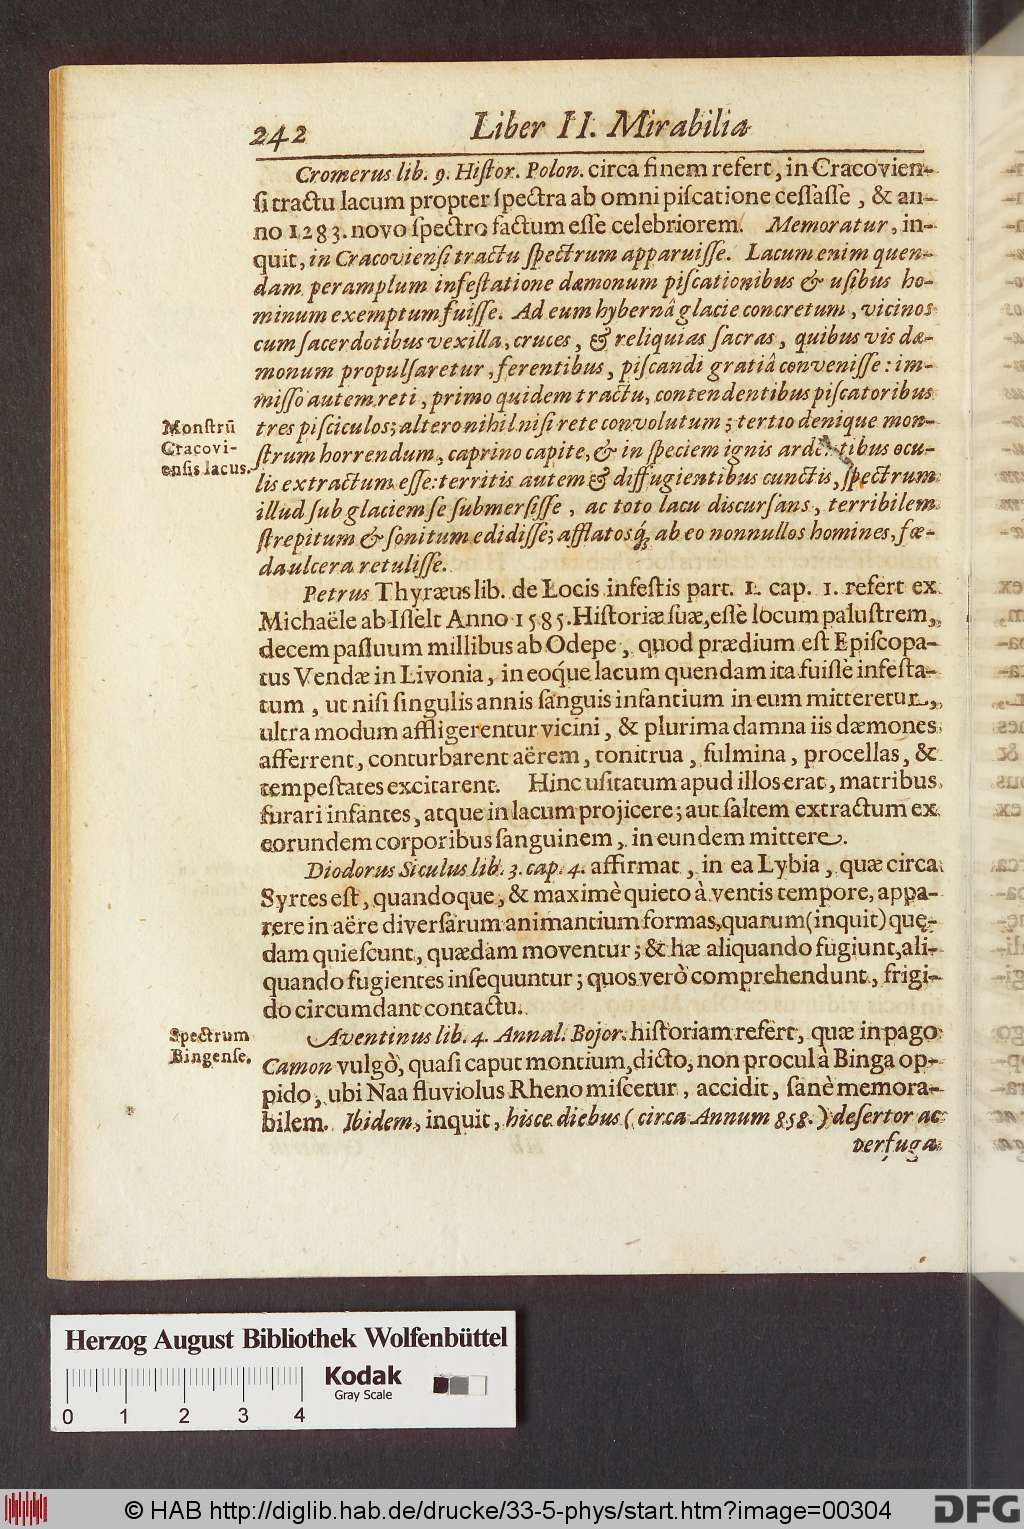 242 Liber II. Mirabilia
Cromerus lib. 9. Histor. Polon. circa finem refert, in Cracovien-
si tractu lacum propter spectra ab omni piscatione cessasse, & an-
no 1283. novo spectro factum esse celebriorem. Memoratur, in-
quit, in Cracoviensi tractu spectrum apparuisse. Lacum enim quen-
dam peramplum infestatione dæmonum piscationibus & usibus ho-
minum exemptum fuisse. Ad eum hybernâ glacie concretum, vicinos
cum sacerdotibus vexilla, cruces, & reliquias sacras, quibus vis dæ-
monum propulsaretur, ferentibus, piscandi gratiâ convenisse: im-
misso autem reti, primo quidem tractu, contendentibus piscatoribus
tres pisciculos; altero nihil nisi rete convolutum; tertio denique mon-
strum horrendum, caprino capite, & in speciem ignis ardentibus ocu-
lis extractum esse: territis autem & diffugientibus cunctis, spectrum
illud sub glaciem se submersisse, ac toto lacu discursans, terribilem
strepitum & sonitum edidisse; afflatosq́; ab eo nonnullos homines, fœ-
da ulcera retulisse.
Monstrū
Cracovi-
ensis lacus.
Petrus Thyræus lib. de Locis infestis part. 1. cap. 1. refert ex
Michaële ab Isselt Anno 1585. Historiæ suæ, esse locum palustrem,
decem passuum millibus ab Odepe, quod prædium est Episcopa-
tus Vendæ in Livonia, in eoq́ue lacum quendam ita fuisse infesta-
tum, ut nisi singulis annis sanguis infantium in eum mitteretur,
ultra modum affligerentur vicini, & plurima damna iis dæmones
afferrent, conturbarent aërem, tonitrua, fulmina, procellas, &
tempestates excitarent. Hinc usitatum apud illos erat, matribus
furari infantes, atque in lacum projicere; aut saltem extractum ex
eorundem corporibus sanguinem, in eundem mittere.
Diodorus Siculus lib. 3. cap. 4. affirmat, in ea Lybia, quæ circa
Syrtes est, quandoque, & maximè quieto à ventis tempore, appa-
rere in aëre diversarum animantium formas, quarum (inquit) quę-
dam quiescunt, quædam moventur; & hæ aliquando fugiunt, ali-
quando fugientes insequuntur; quos verò comprehendunt, frigi-
do circumdant contactu.
Spectrum
Bingense.
Aventinus lib. 4. Annal. Bojor. historiam refert, quæ in pago
Camon vulgò, quasi caput montium, dicto, non procul à Binga op-
pido, ubi Naa fluviolus Rheno miscetur, accidit, sanè memora-
bilem. Ibidem, inquit, hisce diebus (circa Annum 858.) desertor ac
verfuga
Herzog August Bibliothek Wolfenbüttel
Kodak
Gray Scale
0 1 2 3 4
© HAB http://diglib.hab.de/drucke/33-5-phys/start.htm?image=00304
DFG